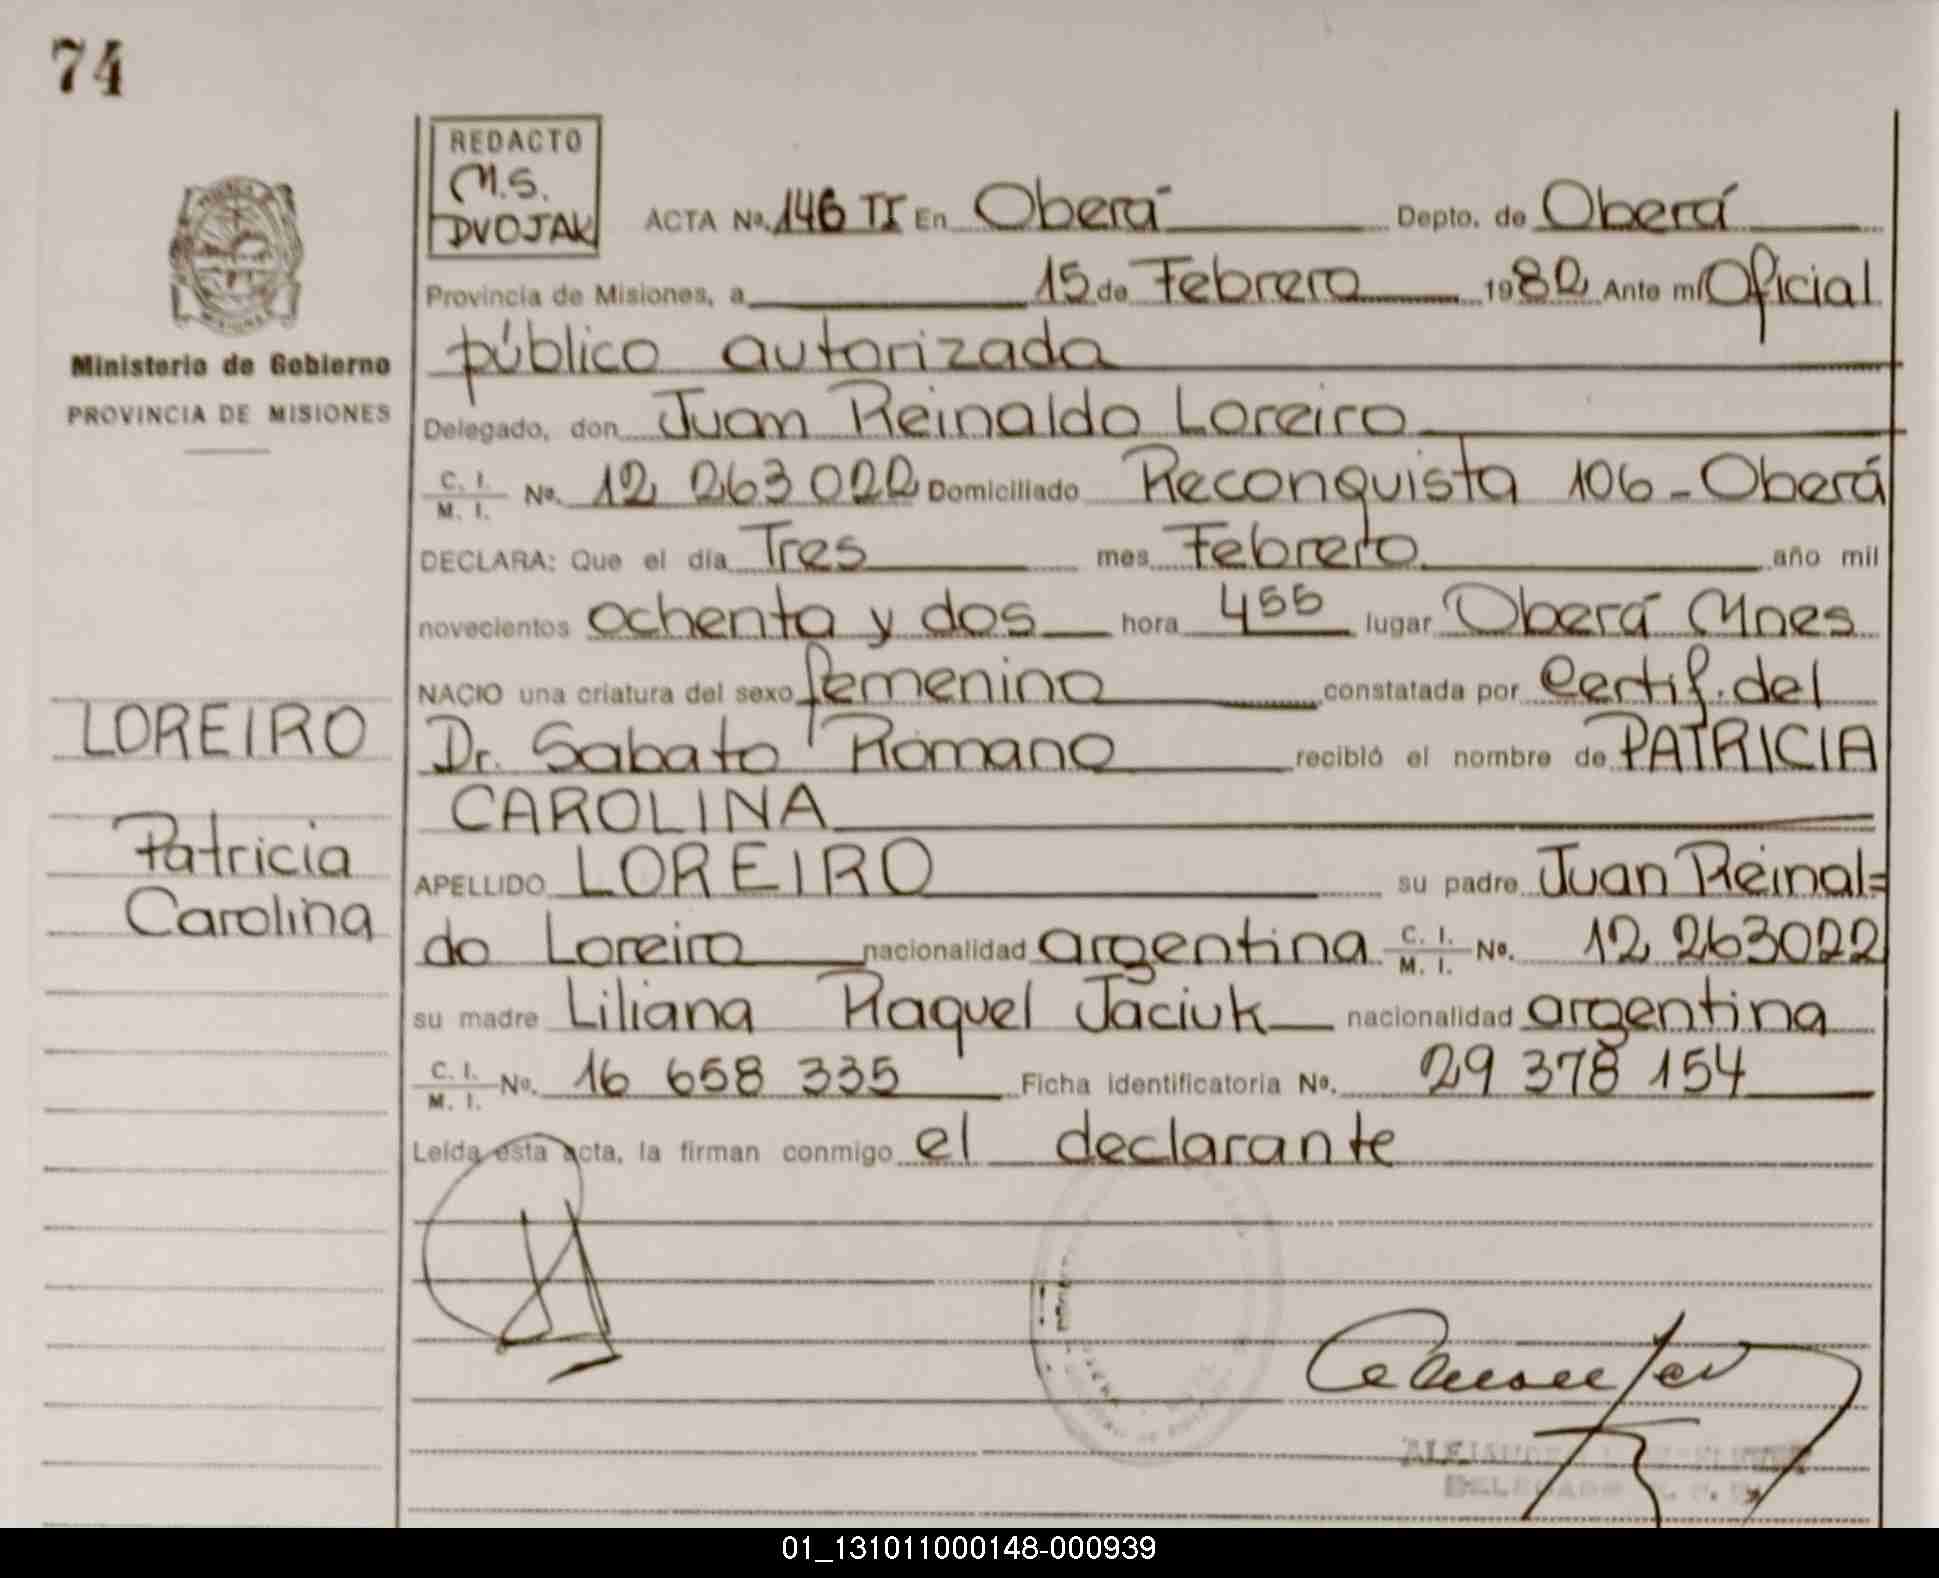 74
REDACTO
M.S.
DVOJAK
ACTA No. 146 TI En Oberá Depto. de Oberá
Provincia de Misiones, a 15 de Febrero 1982 Ante mi Oficial
público autorizada
Delegado, don Juan Reinaldo Loreiro
C. I.
M. I.
No. 12 263 022 Domiciliado Reconquista 106 - Oberá
DECLARA: Que el día Tres mes Febrero año mil
novecientos ochenta y dos hora 4 55 lugar Oberá Mnes
NACIO una criatura del sexo femenino constatada por Certif. del
Dr. Sabato Romano recibió el nombre de PATRICIA
CAROLINA
APELLIDO LOREIRO su padre Juan Reinal=
do Loreiro nacionalidad argentina C. I. M. I. No. 12 263022
su madre Liliana Raquel Jaciuk nacionalidad argentina
C. I.
M. I.
No. 16 658 335 Ficha identificatoria No. 29 378 154
Leída esta acta, la firman conmigo el declarante
Ministerio de Gobierno
PROVINCIA DE MISIONES
LOREIRO
Patricia
Carolina
DELEGADO
01_131011000148-000939